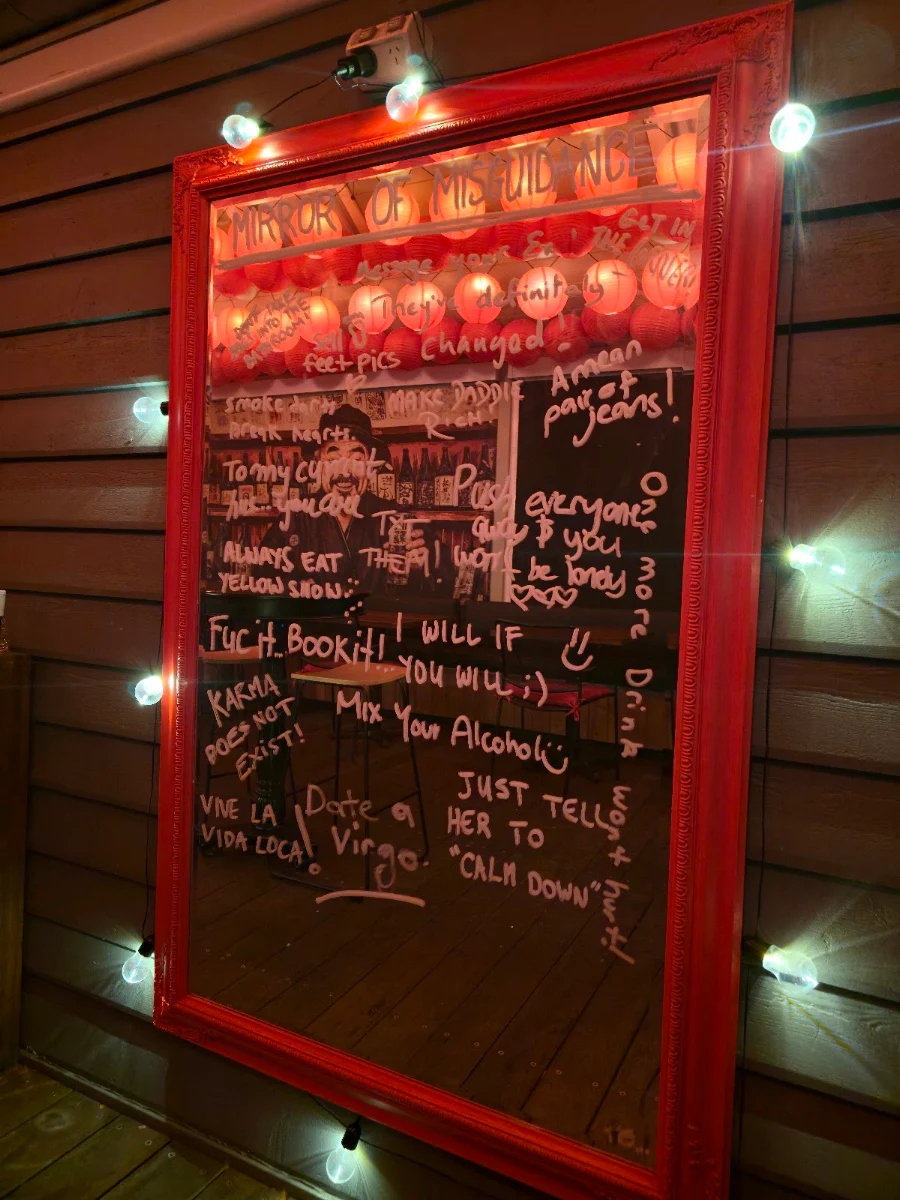 MIRROR OF MISGUIDANCE
Message your Ex!
They've definitely
changed!
GET IN
THE
DON'T TAKE
INTO THE
BATHROOM!
Sell
feet pics
smoke darts
break hearts.
MAKE DADDIE
RICH
A mean
pair of
jeans!
To my current
her.. you can
TXT
THEM!
Push everyone
away & you
won't be lonely
ALWAYS EAT
YELLOW SNOW..
One more Drink won't hurt!
Fuc it.. BOOK it!!
I WILL IF
YOU WILL ;)
KARMA
DOES NOT
EXIST!
Mix Your Alcohol
VIVE LA
VIDA LOCA!
Date a
Virgo.
JUST TELL
HER TO
"CALM DOWN"